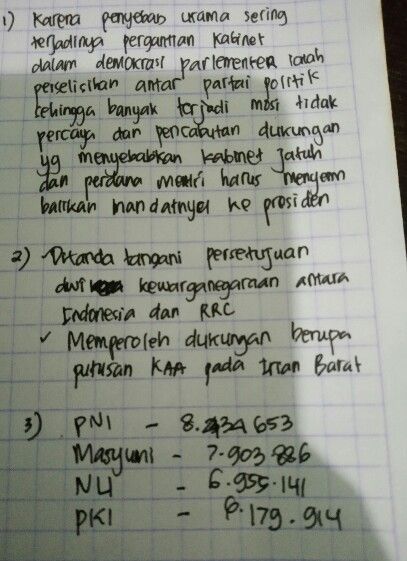 1) Karena penyebab utama sering
terjadinya pergantian Kabinet
dalam demokrasi parlementer ialah
perselisihan antar partai politik
sehingga banyak terjadi mosi tidak
percaya dan pencabutan dukungan
yg menyebabkan kabinet jatuh
dan perdana mentri harus mengem
balikan mandatnya ke presiden
2) Ditanda tangani persetujuan
dwi kewarganegaraan antara
Indonesia dan RRC
✓ Memperoleh dukungan berupa
putusan KAA pada Irian Barat
3) PNI - 8.434 653
Masyumi - 7.903 886
NU - 6.955.141
PKI - 6.179.914